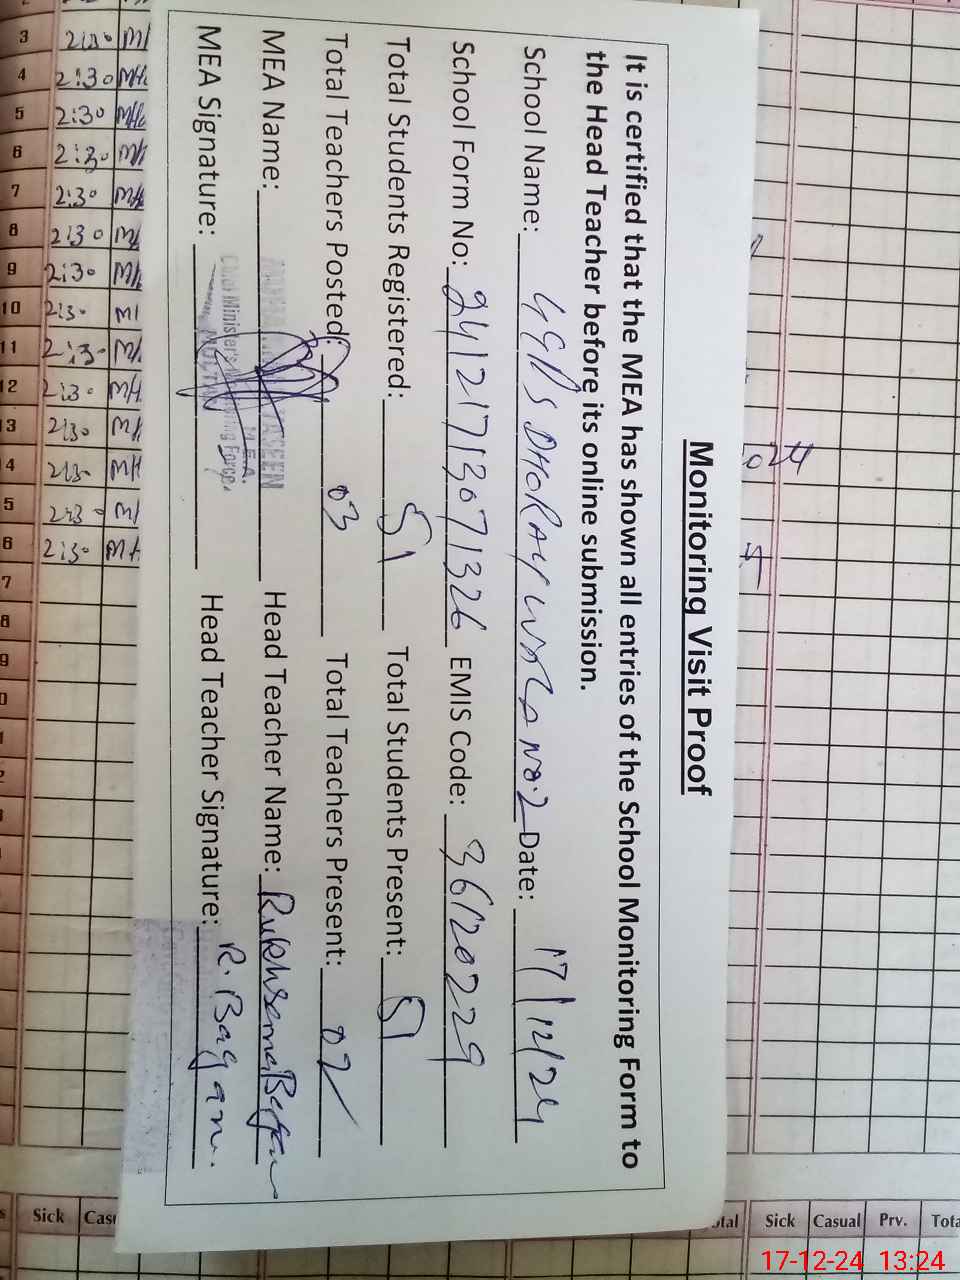 Monitoring Visit Proof
It is certified that the MEA has shown all entries of the School Monitoring Form to
the Head Teacher before its online submission.
School Name: GGPS DHORAY No.2 Date: 17/12/24
School Form No: 24121713071326 EMIS Code: 36120229
Total Students Registered: 51 Total Students Present: 51
Total Teachers Posted: 03 Total Teachers Present: 02
MEA Name: Head Teacher Name: Rukhsena
M.E.A.
Chief Minister's Monitoring Force,
MEA Signature: Head Teacher Signature: R. Bagam.
3 2:30
4 2:30 MH
5 2:30 MH
6 2:30
7 2:30 MH
8 2:30
9 2:30
10 2:30
11 2:30
12 2:30 MH
13 2:30 MH
4 2:30 MH
5 2:30
6 2:30 MH
7
8
9
024
Sick Cas
Sick Casual Prv. Tota
17-12-24 13:24